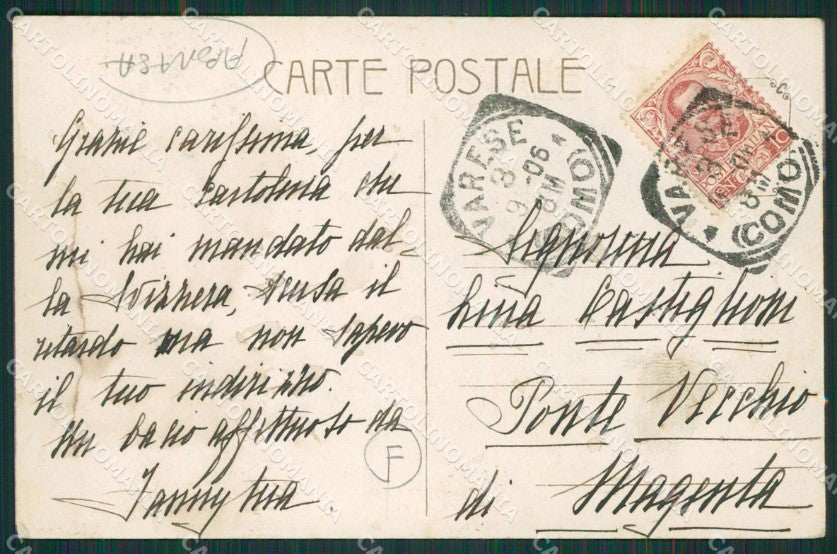 CARTE POSTALE
Grazie carissima, per
la tua cartolina che
mi hai mandato dal-
la Svizzera, scusa il
ritardo ma non sapevo
il tuo indirizzo.
Un bacio affettuoso da
Fanny tua
F
VARESE
(COMO)
8
9-06
8M
VARESE
(COMO)
8M
CENT. 10
Signorina
Lina Castiglioni
Ponte Vecchio
di Magenta
CARTOLINOMANIA